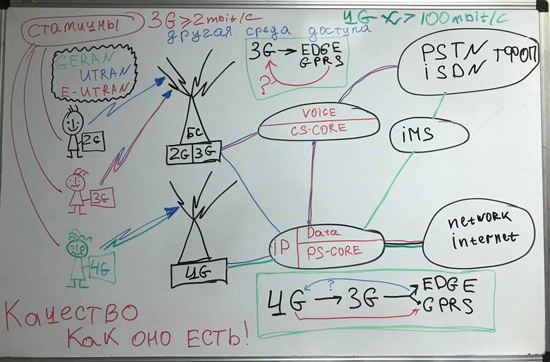 СТАМИЦИНЫ
3G ≥ 2mbit/c
4G > 100mbit/c
другая среда доступа
GERAN
UTRAN
E-UTRAN
3G → EDGE
GPRS
?
PSTN
ISDN
ТФОП
2G
БС
2G 3G
VOICE
CS-CORE
iMS
3G
4G
4G
IP
Data
PS-CORE
network
internet
?
4G → 3G → EDGE
GPRS
КАЧЕСТВО
КАК ОНО ЕСТЬ!